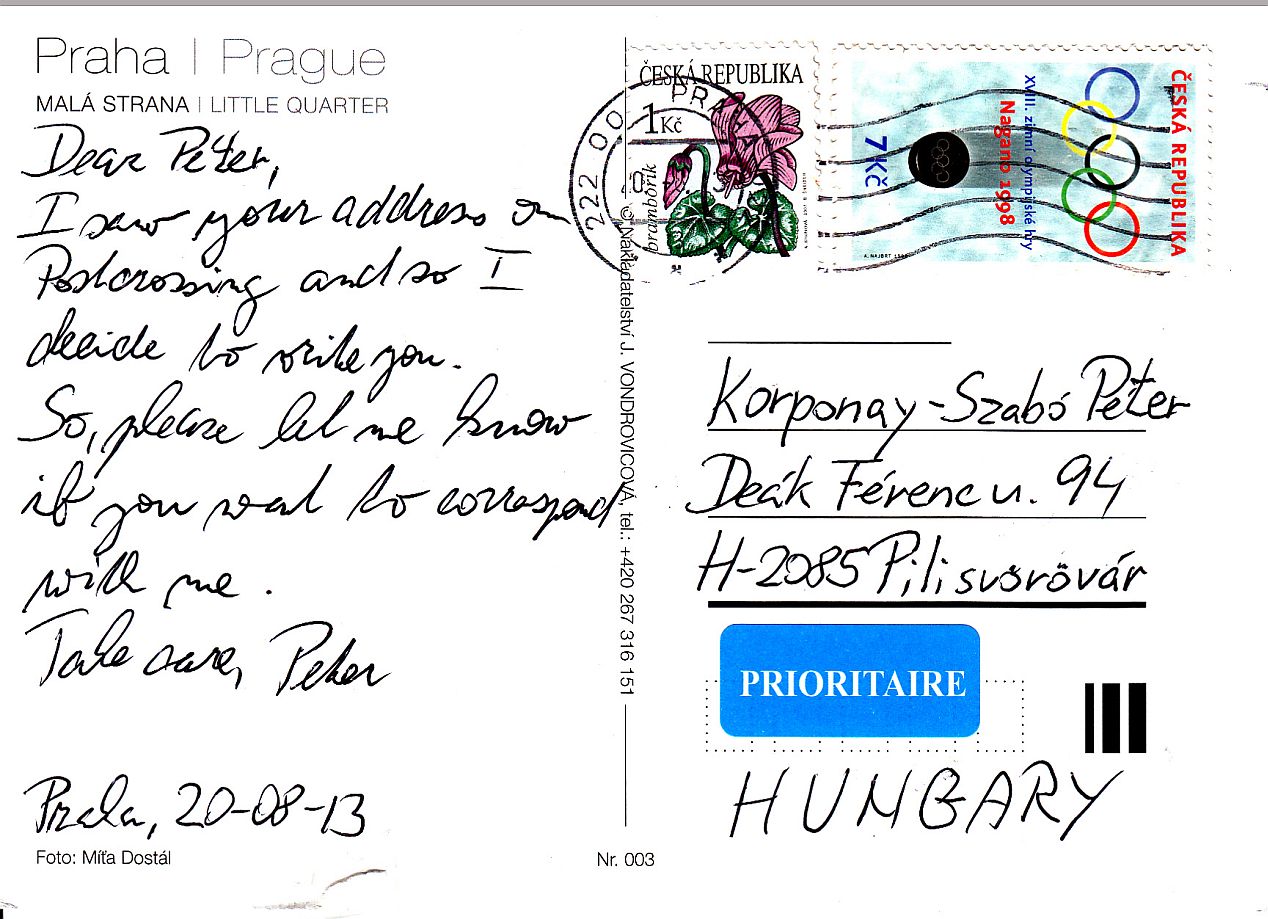 Praha | Prague
MALÁ STRANA | LITTLE QUARTER
Dear Péter,
I saw your address on
Postcrossing and so I
decide to write you.
So, please let me know
if you want to correspond
with me.
Take care, Peter
Praha, 20-08-13
Foto: Míťa Dostál
© Nakladatelství J. VONDROVICOVÁ, tel.: +420 267 316 151
Nr. 003
222 00
PRAHA
ČESKÁ REPUBLIKA
1 Kč
brambořík
ČESKÁ REPUBLIKA
XVIII. zimní olympijské hry
Nagano 1998
7 Kč
Korponay-Szabó Péter
Deák Férenc u. 94
H-2085 Pilisvörövár
PRIORITAIRE
HUNGARY